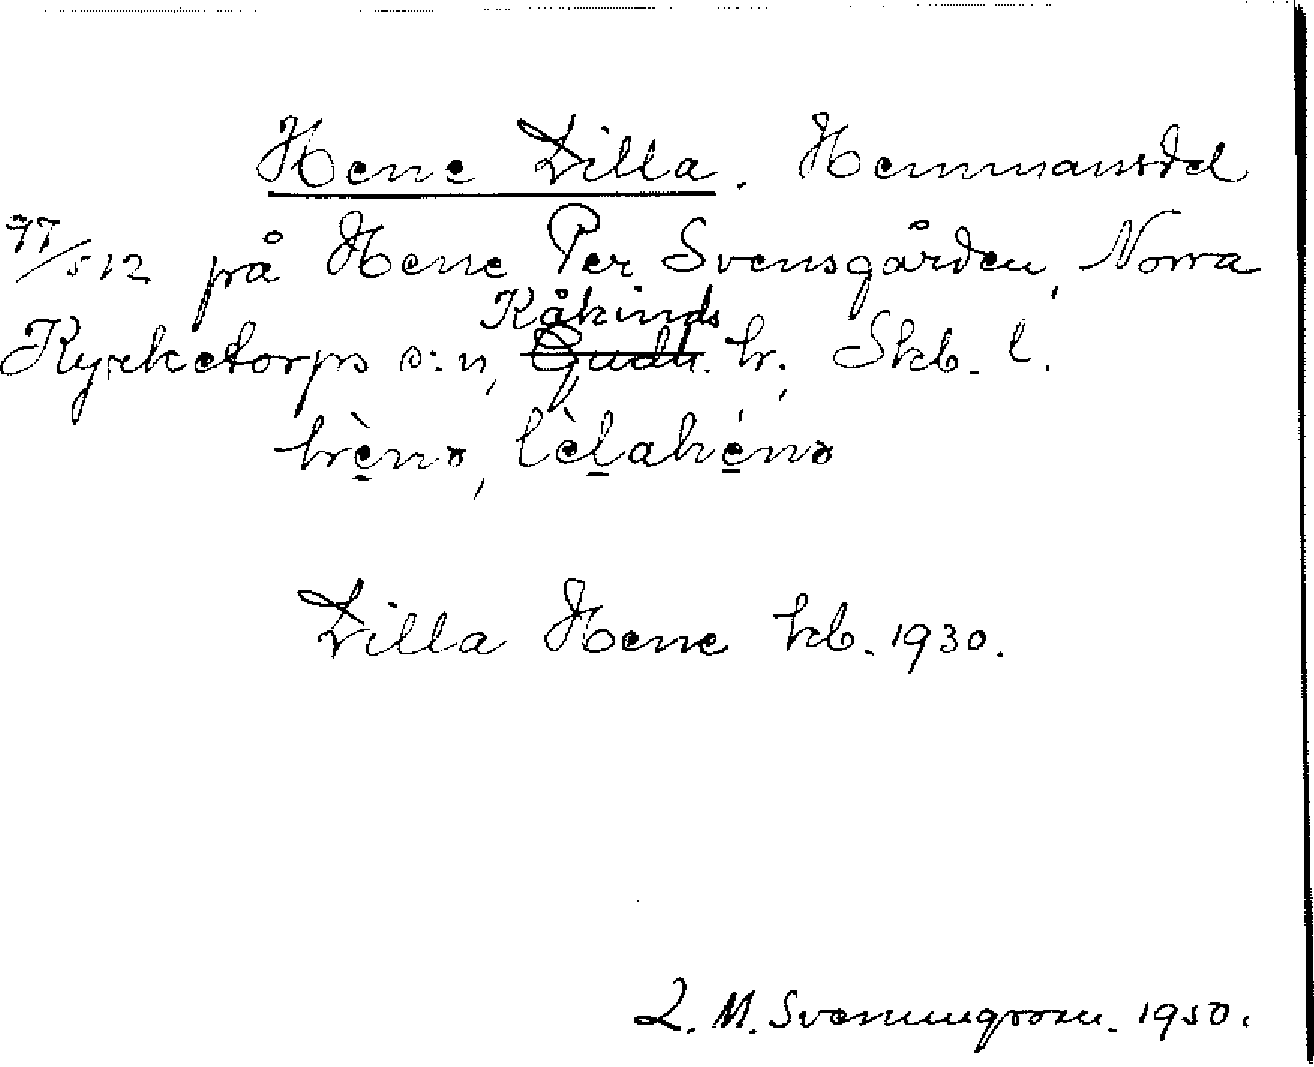 Hene Lilla. Hemmansdel
77/512 på Hene Per Svensgården, Norra
Kåkinds
Kyrketorps s:n, Gudh. hr., Skb. l.
hènə, lèlahénə
Lilla Hene hb. 1930.
L. M. Svenungsson. 1950.